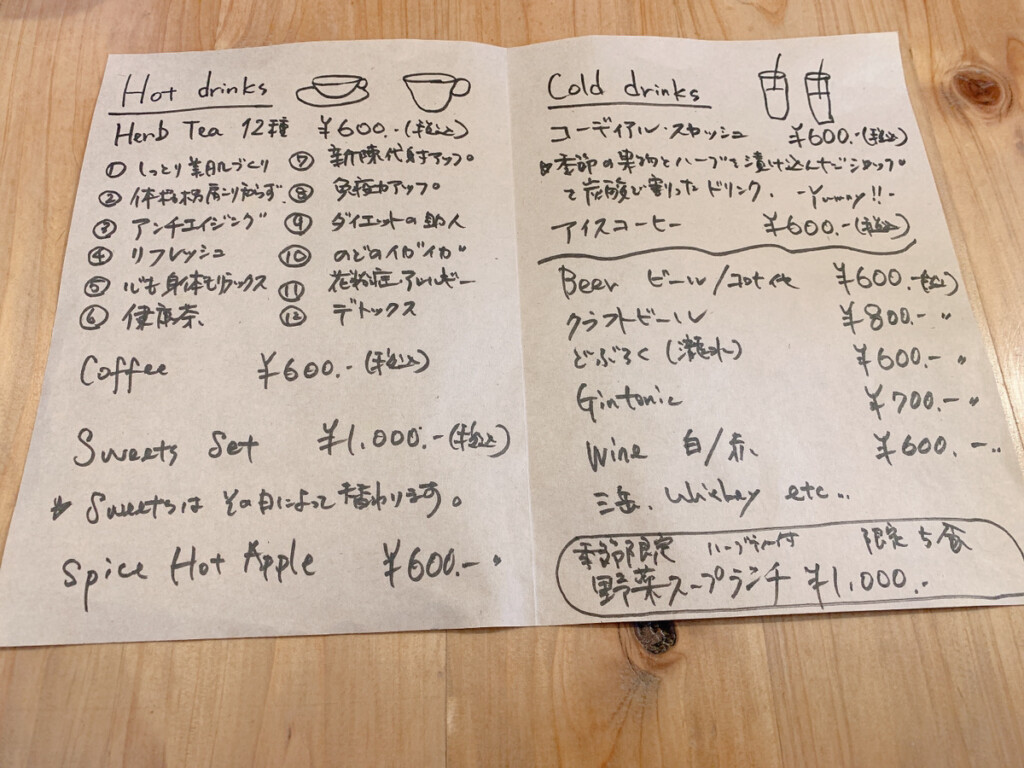 Hot drinks
Herb Tea 12種 ¥600.-(税込)
① しっとり美肌づくり
② 体ぽかぽか肩こり知らず
③ アンチエイジング
④ リフレッシュ
⑤ 心も身体もリラックス
⑥ 健康茶
⑦ 新陳代謝アップ。
⑧ 免疫力アップ。
⑨ ダイエットの助人
⑩ のどのイガイガ
⑪ 花粉症・アレルギー
⑫ デトックス
Coffee ¥600.-(税込)
Sweets Set ¥1,000.-(税込)
☆ Sweetsは その日によって替わります。
Spice Hot Apple ¥600.-〃
Cold drinks
コーディアル・スカッシュ ¥600.-(税込)
☆季節の果物とハーブを漬け込んだシロップ
を炭酸で割ったドリンク. -Yummy!!-
アイスコーヒー ¥600.-(税込)
Beer ビール/ ¥600.-(税込)
クラフトビール ¥800.-〃
どぶろく ¥600.-〃
Gintonic ¥700.-〃
Wine 白/赤 ¥600.-〃
三岳. Whiskey etc..
季節限定 ハーブティー付 限定5食
野菜スープランチ ¥1,000.-